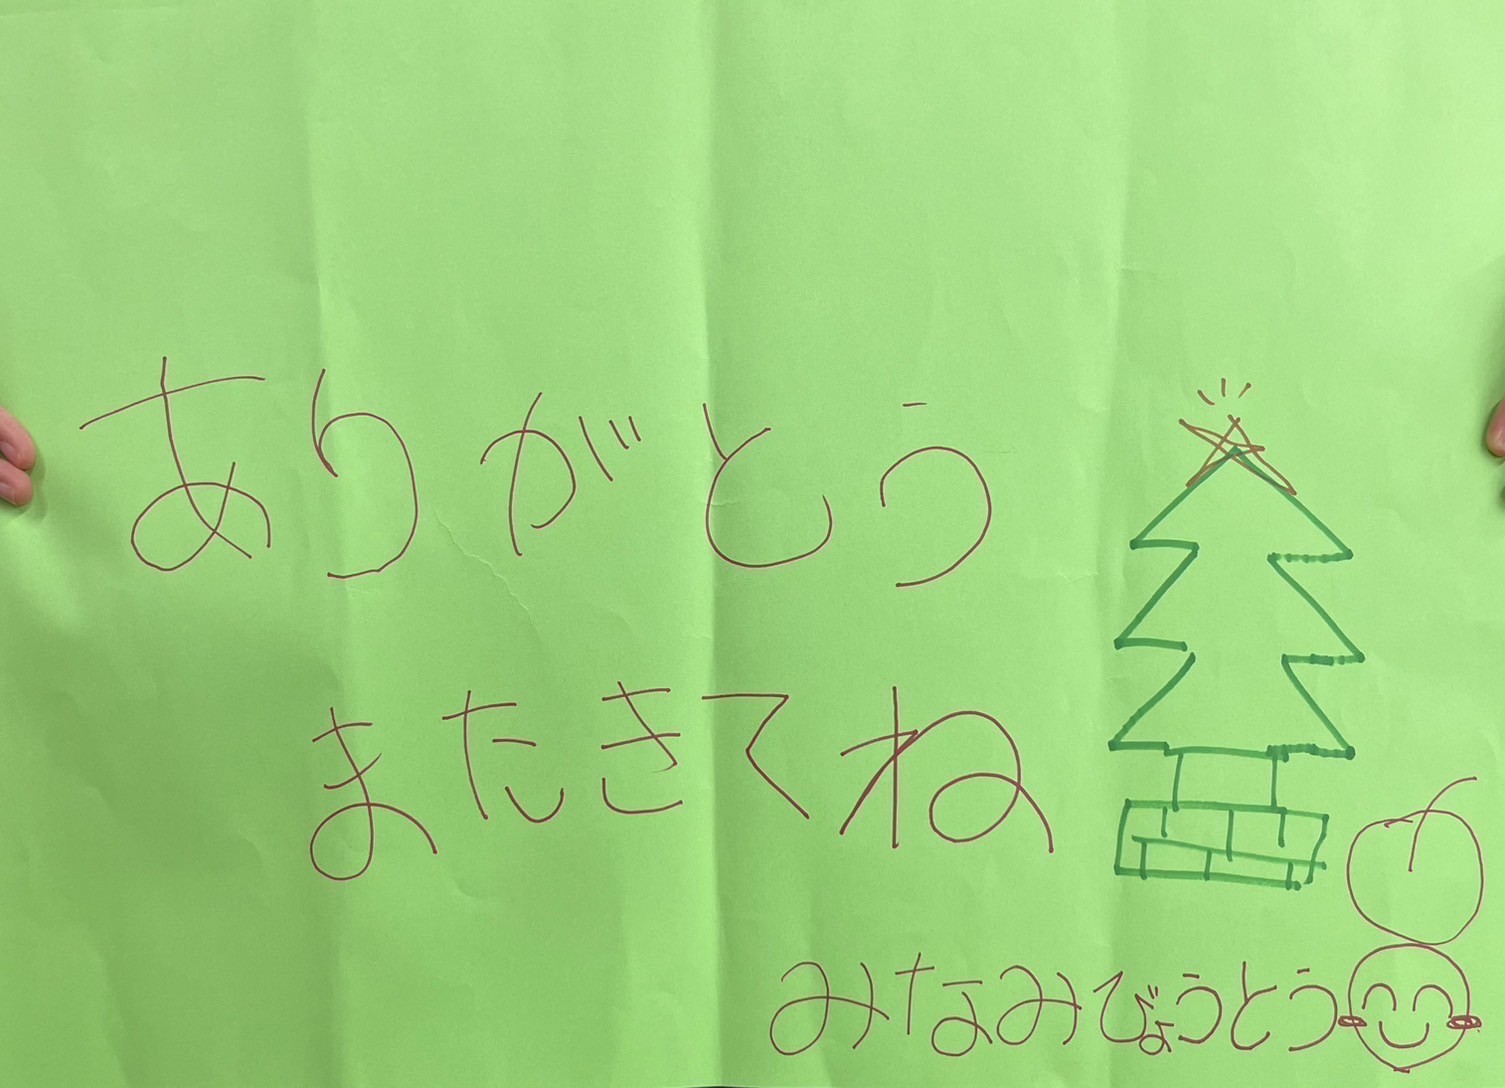 ありがとう
またきてね
みなみびょうとう